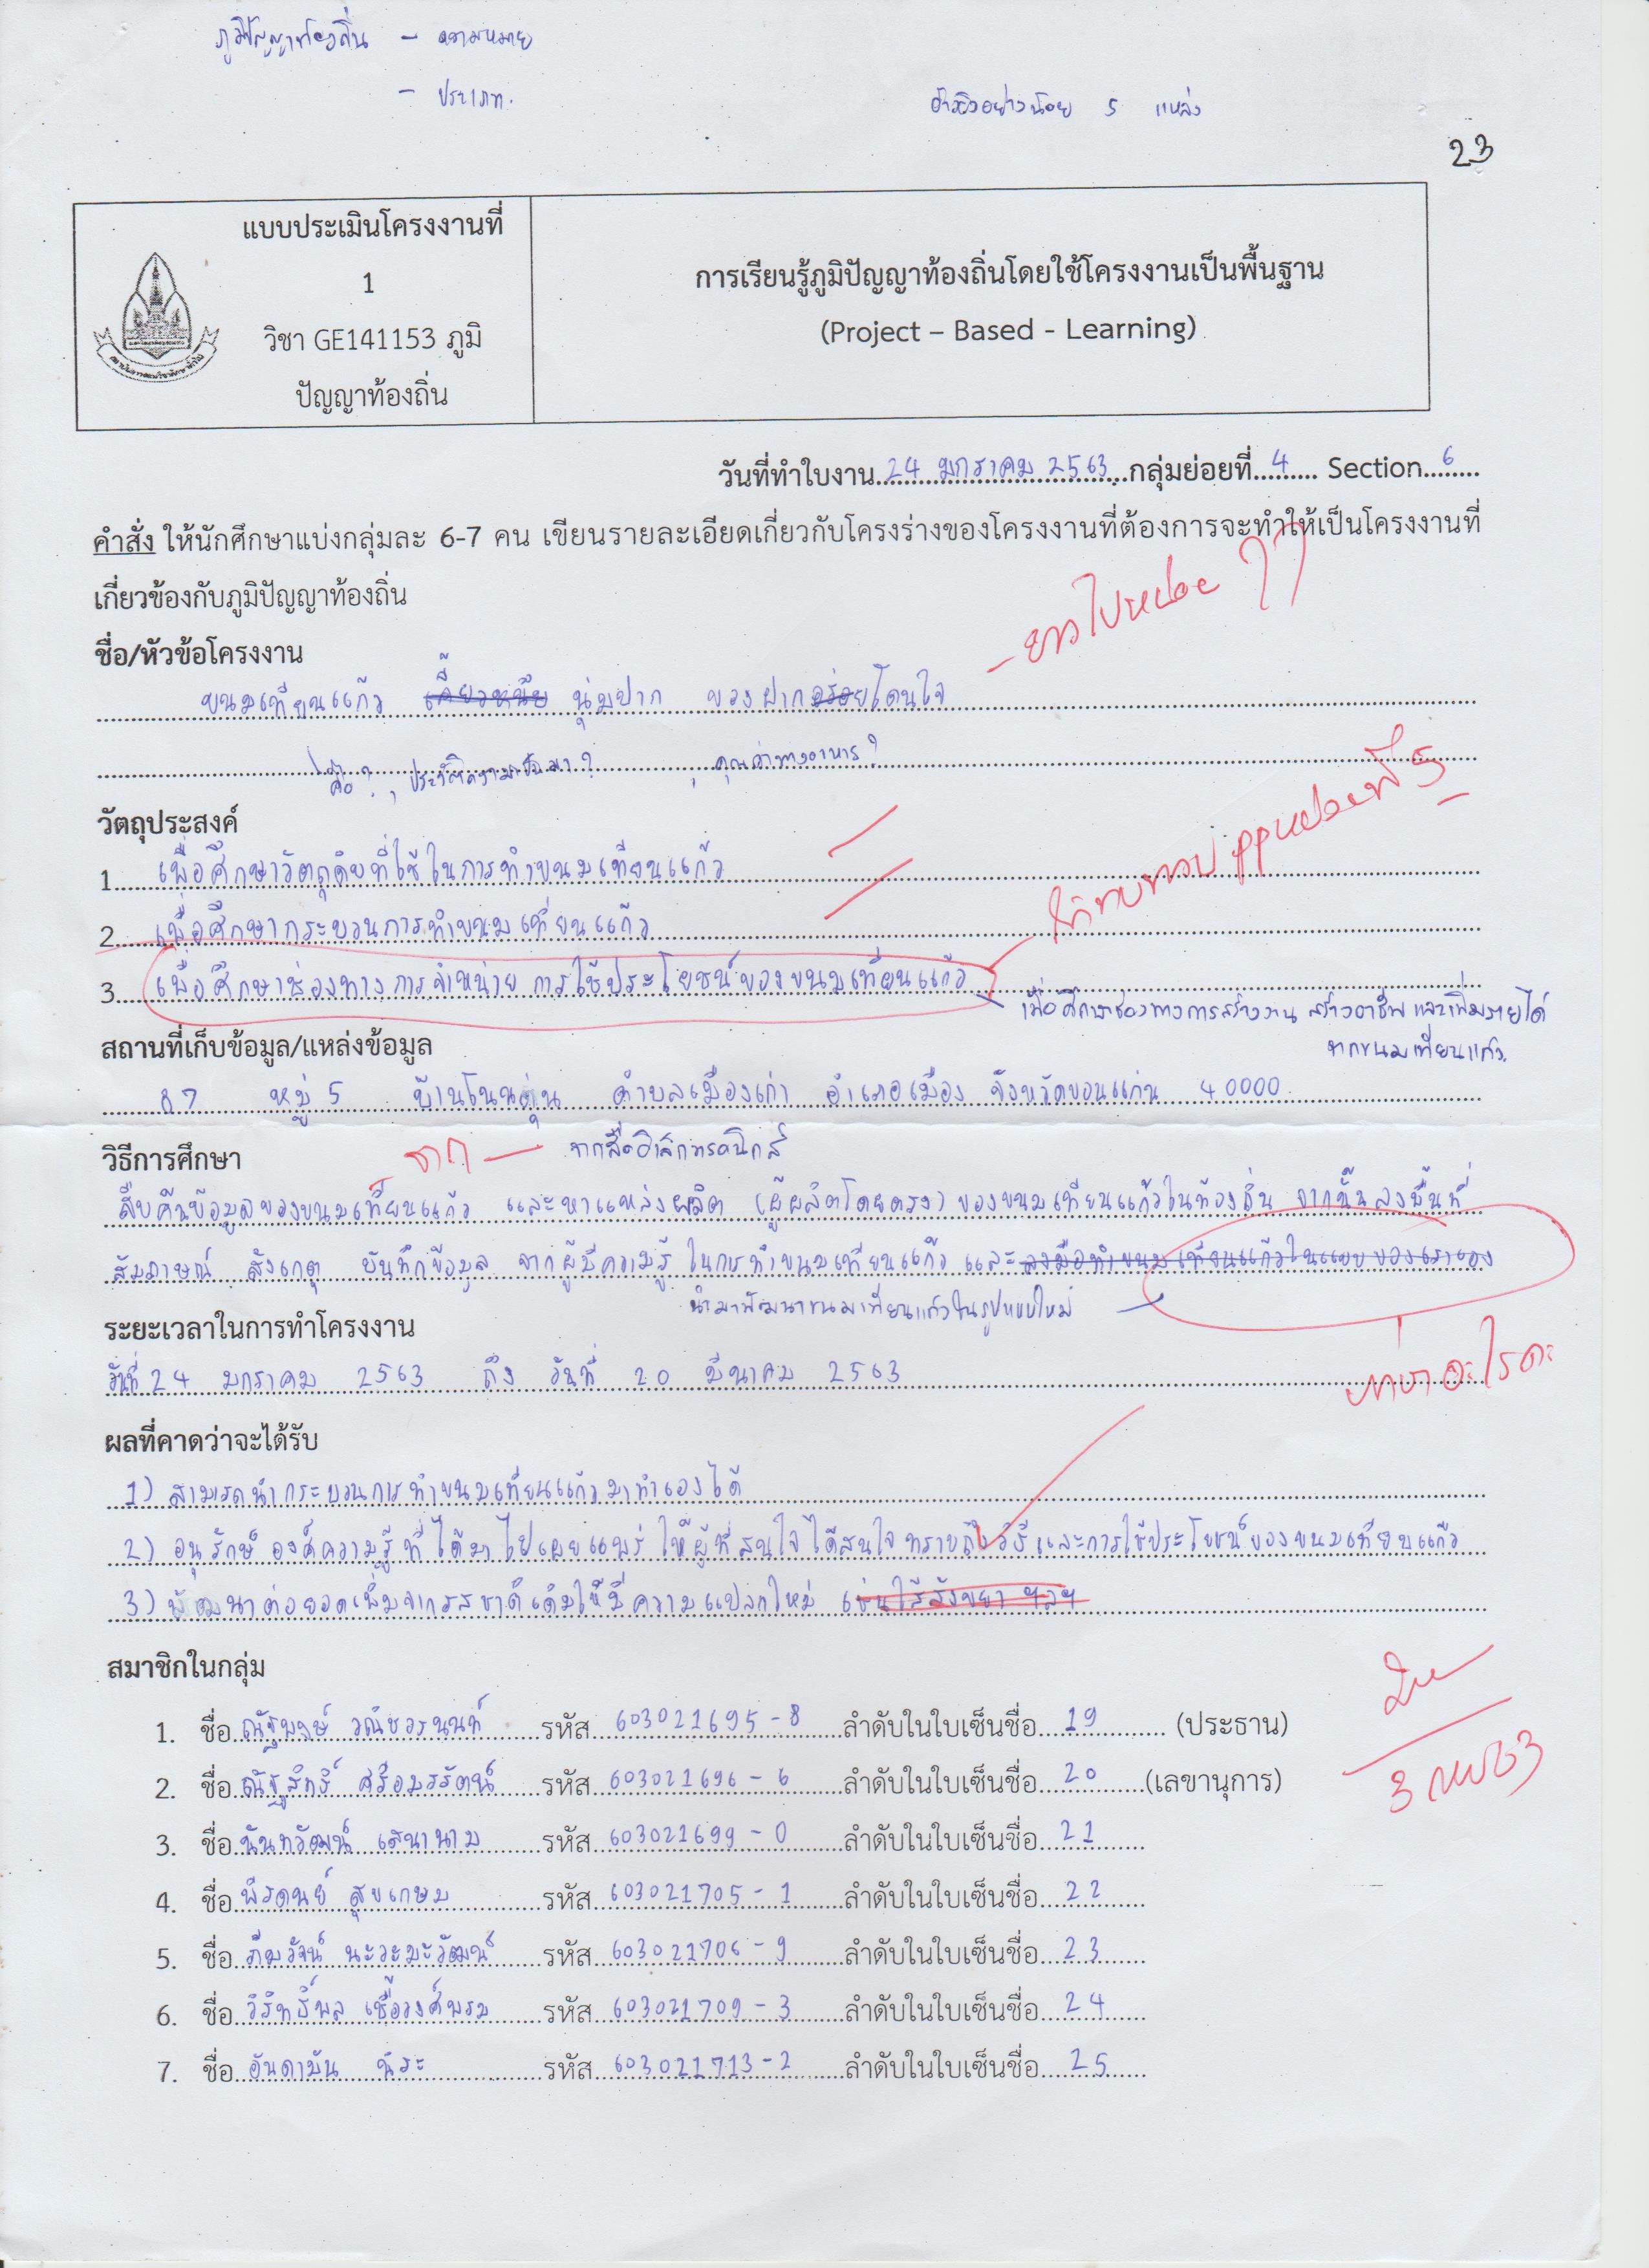 ภูมิปัญญาท้องถิ่น - ความหมาย
- ประเภท.
อ้างอิงอย่างน้อย 5 แหล่ง
23
แบบประเมินโครงงานที่
1
วิชา GE141153 ภูมิ
ปัญญาท้องถิ่น
การเรียนรู้ภูมิปัญญาท้องถิ่นโดยใช้โครงงานเป็นพื้นฐาน
(Project – Based - Learning)
วันที่ทำใบงาน 24 มกราคม 2563 กลุ่มย่อยที่ 4 Section 6
คำสั่ง ให้นักศึกษาแบ่งกลุ่มละ 6-7 คน เขียนรายละเอียดเกี่ยวกับโครงร่างของโครงงานที่ต้องการจะทำให้เป็นโครงงานที่
เกี่ยวข้องกับภูมิปัญญาท้องถิ่น
- ยาวไปหน่อย
ชื่อ/หัวข้อโครงงาน
ขนมเทียนแก้ว เคี้ยวหนึบ นุ่มปาก ของฝากอร่อยโดนใจ
คือ? , ประวัติความเป็นมา? , คุณค่าทางอาหาร?
วัตถุประสงค์
1. เพื่อศึกษาวัตถุดิบที่ใช้ในการทำขนมเทียนแก้ว
2. เพื่อศึกษากระบวนการทำขนมเทียนแก้ว
3. เพื่อศึกษาช่องทางการจำหน่าย การใช้ประโยชน์ของขนมเทียนแก้ว
เพื่อศึกษาช่องทางการสร้างงาน สร้างอาชีพ และเพิ่มรายได้
จากขนมเทียนแก้ว.
สถานที่เก็บข้อมูล/แหล่งข้อมูล
87 หมู่ 5 บ้านโนนตุ่น ตำบลเมืองเก่า อำเภอเมือง จังหวัดขอนแก่น 40000
วิธีการศึกษา
จาก — จากสื่ออิเล็กทรอนิกส์
สืบค้นข้อมูลของขนมเทียนแก้ว และหาแหล่งผลิต (ผู้ผลิตโดยตรง) ของขนมเทียนแก้วในท้องถิ่น จากนั้นลงพื้นที่
สัมภาษณ์ สังเกต บันทึกข้อมูล จากผู้มีความรู้ ในการทำขนมเทียนแก้ว และลงมือทำขนมเทียนแก้วในแบบของเราเอง
นำมาพัฒนาขนมเทียนแก้วในรูปแบบใหม่
ระยะเวลาในการทำโครงงาน
วันที่ 24 มกราคม 2563 ถึง วันที่ 20 มีนาคม 2563
ภาษาอะไรคะ
ผลที่คาดว่าจะได้รับ
1) สามารถนำกระบวนการทำขนมเทียนแก้วมาทำเองได้
2) อนุรักษ์ องค์ความรู้ที่ได้มาไปเผยแพร่ ให้ผู้ที่สนใจได้สนใจ ทราบถึงวิธีและการใช้ประโยชน์ของขนมเทียนแก้ว
3) พัฒนาต่อยอดเพิ่มจากรสชาติเดิมให้มีความแปลกใหม่ เช่นไส้สังขยา ฯลฯ
สมาชิกในกลุ่ม
1. ชื่อ ณัฐพงษ์ วณิชวรนนท์ รหัส 603021695-8 ลำดับในใบเซ็นชื่อ 19 (ประธาน)
2. ชื่อ ณัฐสิทธิ์ ศรีอมรรัตน์ รหัส 603021696-6 ลำดับในใบเซ็นชื่อ 20 (เลขานุการ)
3. ชื่อ นันทวัฒน์ เสนานาม รหัส 603021699-0 ลำดับในใบเซ็นชื่อ 21
4. ชื่อ พีรดนย์ สุขเกษม รหัส 603021705-1 ลำดับในใบเซ็นชื่อ 22
5. ชื่อ ภีมวัจน์ นะวะมะวัฒน์ รหัส 603021706-9 ลำดับในใบเซ็นชื่อ 23
6. ชื่อ วิริทธิ์พล เชื้อวงศ์พรม รหัส 603021709-3 ลำดับในใบเซ็นชื่อ 24
7. ชื่อ อันดามัน นิระ รหัส 603021713-2 ลำดับในใบเซ็นชื่อ 25
3 กพ 63